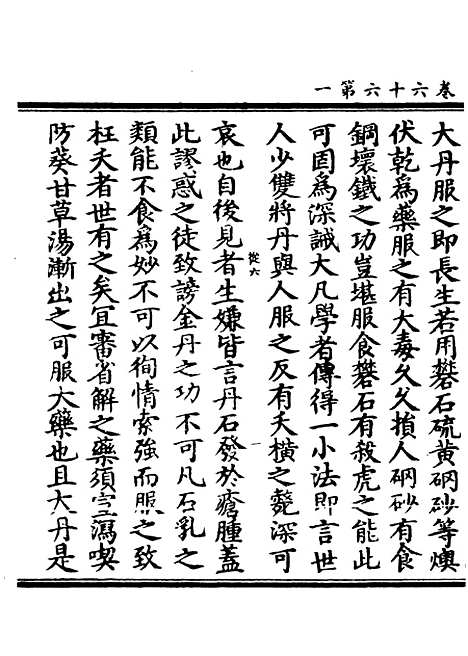 卷六十六第一
大丹服之即長生若用礬石硫黄硇砂等燠
伏乾為藥服之有大毒久久損人硇砂有食
銅壞鐵之功豈堪服食礬石有殺虎之能此
可固為深誡大凡學者傳得一小法即言世
人少雙將丹與人服之反有夭橫之斃深可
哀也自後見者生嫌皆言丹石發於瘡腫蓋
從六
一
此謬惑之徒致謗金丹之功不可凡石乳之
類能不食為妙不可以徇情索強而服之致
枉夭者世有之矣冝審省解之藥須宣瀉喫
防葵甘草湯漸出之可服大藥也且大丹是